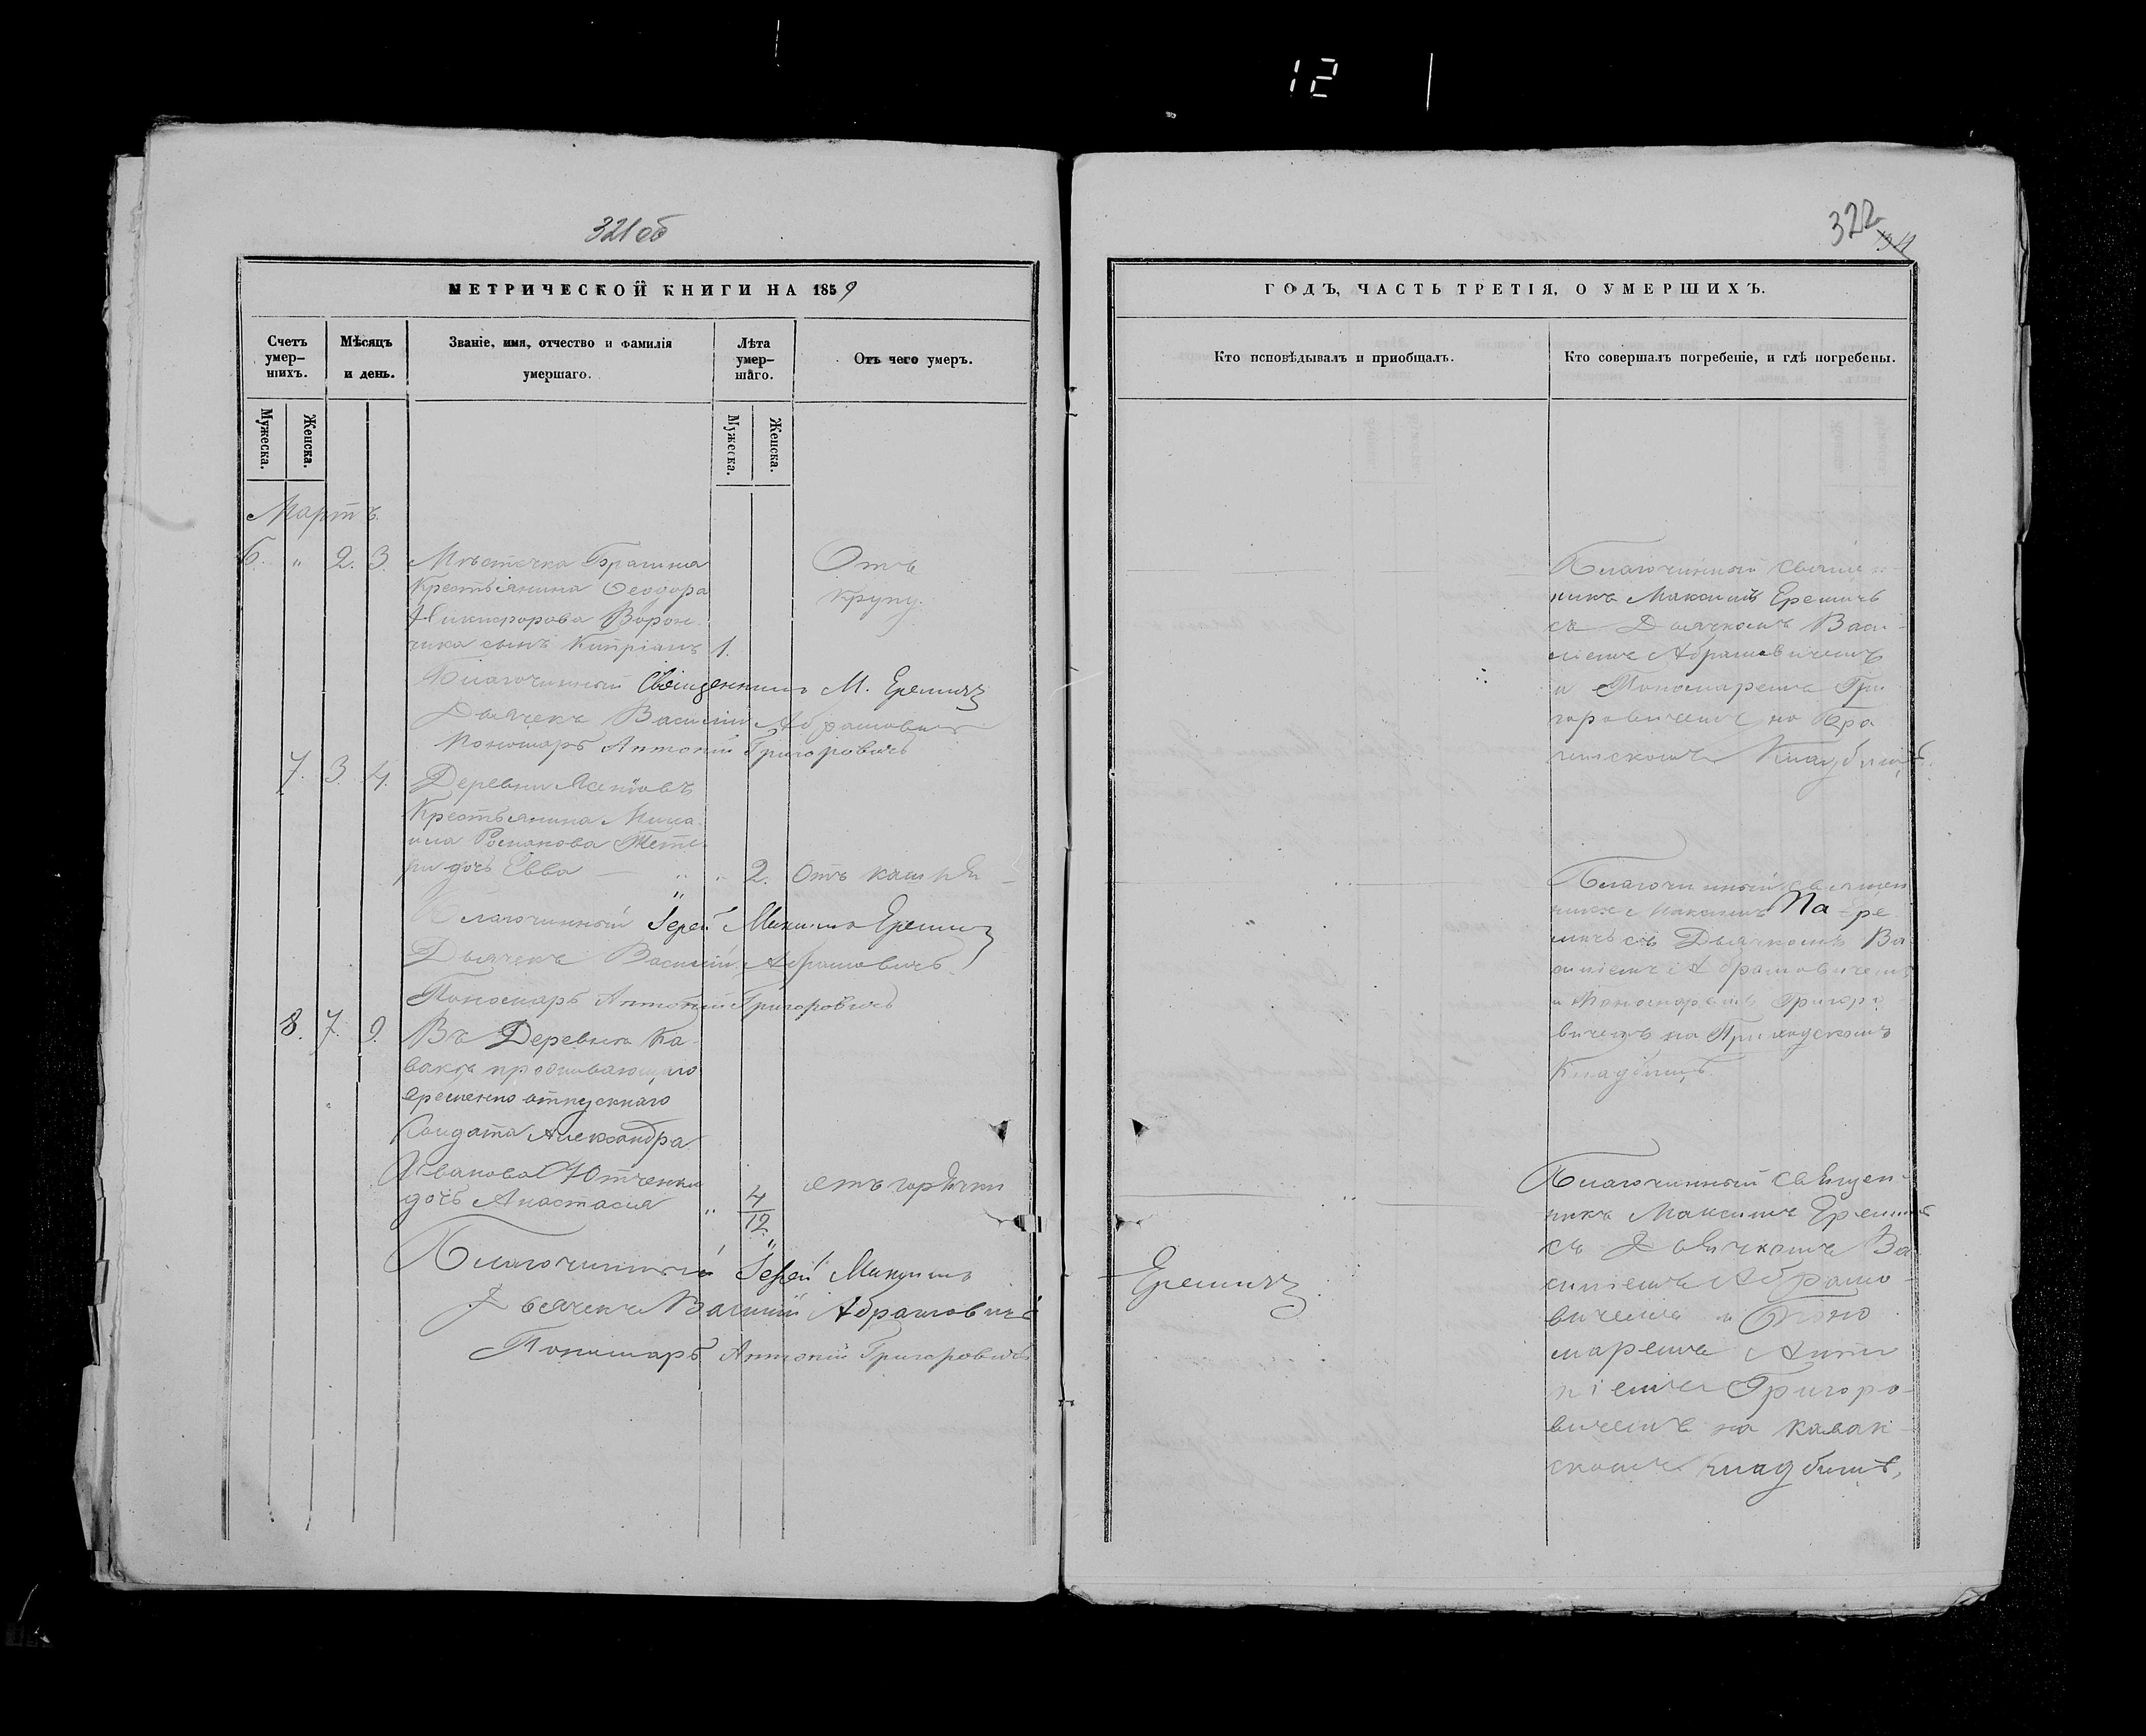 12
321 об
МЕТРИЧЕСКОЙ КНИГИ НА 1859
Счетъ умер-шихъ.
Мѣсяцъ и день.
Званіе, имя, отчество и фамилія умершаго.
Лѣта умер-шаго.
Отъ чего умеръ.
Мужеска.
Женска.
Мужеска.
Женска.
Мартъ.
6. " 2. 3. Мѣстечка Брагина
Крестьянина Ѳеодора
Никифорова Ворон-
чика сынъ Кипріанъ 1.
Отъ
крупу.
Благочинный Священникъ М. Еремичъ
Дьячекъ Василій Абрамовичъ
Пономарь Антоній Григоровичъ
7. 3. 4. Деревни
Крестьянина Миха-
ила Романова Тете-
ри дочь Евва " 2. Отъ кашля
Благочинный Іерей Максимъ Еремичъ
Дьячекъ Василій Абрамовичъ
Пономарь Антоній Григоровичъ
8. 7. 9. Въ Деревнѣ Ка-
вакѣ проживающаго
временно отпускнаго
Солдата Александра
Иванова
дочь Анастасія " 4/12. отъ горячки
Благочинный Іерей Максимъ
Дьячекъ Василій Абрамовичъ
Пономарь Антоній Григоровичъ
322
ГОДЪ, ЧАСТЬ ТРЕТІЯ, О УМЕРШИХЪ.
Кто исповѣдывалъ и пріобщалъ.
Кто совершалъ погребеніе, и гдѣ погребены.
Благочинный Священ-
никъ Максимъ Еремичъ
съ Дьячкомъ Васи-
ліемъ Абрамовичемъ
и Пономаремъ Гри-
горовичемъ на Бра-
гинскомъ Кладбищѣ.
Благочинный Священ-
никъ Максимъ Ере-
мичъ съ Дьячкомъ Ва-
силіемъ Абрамовичемъ
и Пономаремъ Григоро-
вичемъ на Приходскомъ
Кладбищѣ.
Еремичъ
Благочинный Священ-
никъ Максимъ Еремичъ
съ Дьячкомъ Ва-
силіемъ Абрамо-
вичемъ и Поно-
маремъ Анто-
ніемъ Григоро-
вичемъ на Кавак-
скомъ кладбищѣ,